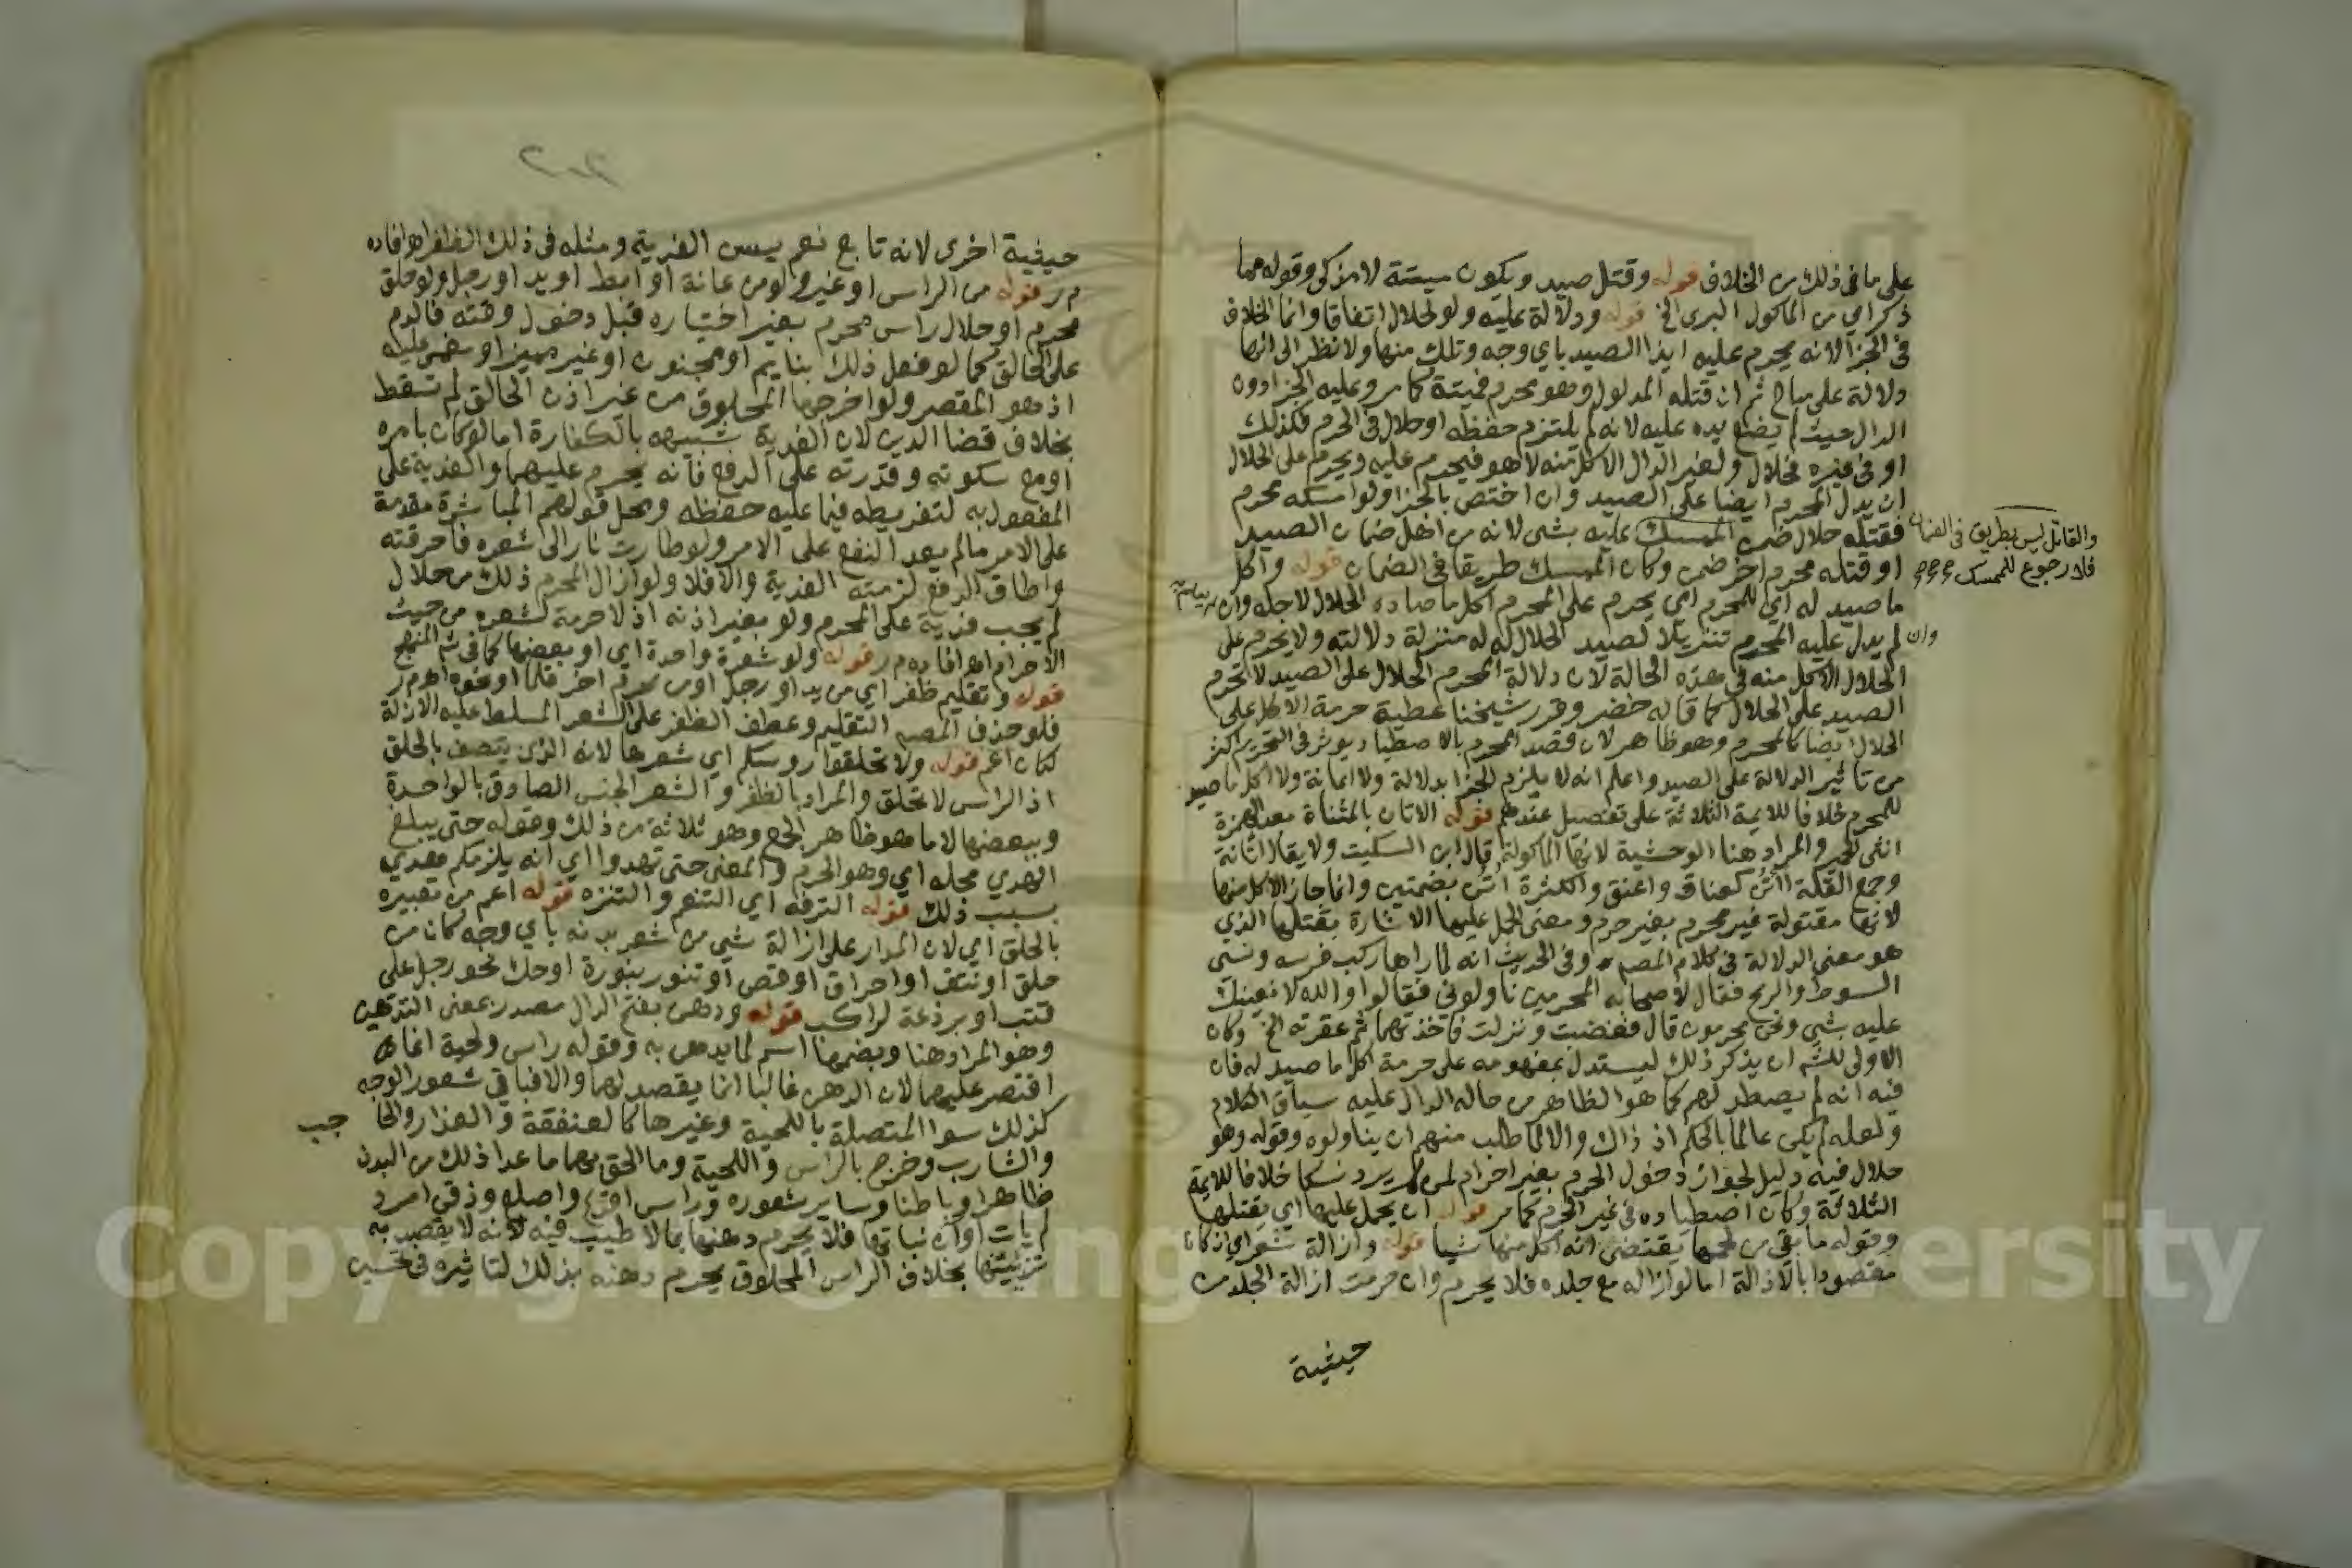 على ما في ذلك من الخلاف قوله وقتل صيد ويكون ميتة لا مذكى وقوله مما
ذكر اي من الماكول البري الخ قوله ودلالة عليه ولو لحلال اتفاقا وانما الخلاف
في الجزا لانه يحرم عليه ايذا الصيد باي وجه وتلك منها ولا نظر الى انها
دلالة على مباح ثم ان قتله المدلول وهو محرم فميتة كما مر وعليه الجزا دون
الدال حيث لم يضع يده عليه لانه لم يلتزم حفظه او حلال في الحرم فكذلك
او في غيره فحلال ولغير الدال الاكل منه لا هو فيحرم عليه ويحرم على الحلال
ان يدل المحرم ايضا على الصيد وان اختص بالجزا ولو امسكه محرم
فقتله حلال ضمن الممسك عليه بشي لانه من اهل ضمان الصيد
والقاتل ليس بطريق في الضمان
فلا رجوع للممسك
او قتله محرم اخر ضمن وكان الممسك طريقا في الضمان قوله واكل
ما صيد له اي للمحرم اي يحرم على المحرم اكل ما صاده الحلال لاجله وان
وان لم يدل عليه المحرم تنزيلا لصيد الحلال له منزلة دلالته ولا يحرم على
الحلال الاكل منه في هذه الحالة لان دلالة المحرم الحلال على الصيد لا تحرم
الصيد على الحلال كما قاله خضر وقرر شيخنا عطية حرمة الاكل على
الحلال ايضا كالمحرم وهو ظاهر لان قصد المحرم بالاصطياد يوثر في التحريم اكثر
من تاثير الدلالة على الصيد واعلم انه لا يلزم الجزا بدلالة ولا اعانة ولا اكل ما صيد
للمحرم خلافا للايمة الثلاثة على تفصيل عندهم قوله الاتان بالمثناة بعد الهمزة
انثى الحمير والمراد هنا الوحشية لانها الماكولة قال ابن السكيت ولا يقال اتانة
وجمع القلة آتن كعناق واعنق والكثرة اتن بضمتين وانما جاز الاكل منها
لانها مقتولة غير محرم بغير حرم ومعنى الحمل عليها الاشارة بقتلها الذي
هو معنى الدلالة في كلام المصـ وفي الحديث انه لما راها ركب فرسه ونسي
السوط والرمح فقال لاصحابه المحرمين ناولوني فقالوا والله لا نعينك
عليه بشي ونحن محرمون قال فغضبت ونزلت فاخذتهما ثم عقرته الخ وكان
الاولى للشـ ان يذكر ذلك ليستدل بمفهومه على حرمة اكل ما صيد له فان
فيه انه لم يصطد لهم كما هو الظاهر من حاله الدال عليه سياق الكلام
ولعله لم يكن عالما بالحكم اذ ذاك والا لما طلب منهم ان يناولوه وقوله وهو
حلال فيه دليل لجواز دخول الحرم بغير احرام لمن لم يرد نسكا خلافا للايمة
الثلاثة وكان اصطياده في غير الحرم كما مر قوله ان يحمل عليها اي بقتلها
وقوله ما بقي من لحمها يقتضي انه اكل منها شيا قوله وازالة شعر اي ان كان
مقصودا بالازالة اما لو ازاله مع جلده فلا يحرم وان حرمت ازالة الجلد من
حيثية
حيثية اخرى لانه تابع نعم يسن الفدية ومثله في ذلك الظفر اهـ افاده
م ر قوله من الراس او غيره ولو من عانة او ابط او يد او رجل ولو حلق
محرم او حلال راس محرم بغير اختياره قبل دخول وقته فالدم
على الحالق كما لو فعل ذلك بنايم او مجنون او غير مميز او مغمى عليه
اذ هو المقصر ولو اخرجها المحلوق من غير اذن الحالق لم تسقط
بخلاف قضا الدين لان الفدية شبيهه بالكفارة اما لو كان بامره
او مع سكوته وقدرته على الدفع فانه يحرم عليهما والفدية على
المفعول به لتفريطه فيما عليه حفظه ومحل قولهم المباشرة مقدمة
على الامر ما لم يعد النفع على الامر ولو طارت نار الى شعره فاحرقته
واطاق الدفع لزمته الفدية والا فلا ولو ازال المحرم ذلك من حلال
لم يجب فدية على المحرم ولو بغير اذنه اذ لا حرمة لشعره من حيث
الاحرام اهـ افاده م ر قوله ولو شعرة واحدة اي او بعضها كما في شـ المنهج
قوله وتقليم ظفر اي من يد او رجل او من محرم اخر قلما او نحوه اهـ م ر
فلو حذف المصـ التقليم وعطف الظفر على الشعر المسلط عليه الازالة
لكان اعم قوله ولا تحلقوا روسكم اي شعرها لانه الذي يتصف بالحلق
اذ الراس لا تحلق والمراد بالظفر والشعر الجنس الصادق بالواحدة
وببعضها لا ما هو ظاهر الجمع وهو ثلاثة من ذلك وقوله حتى يبلغ
الهدي محله اي وهو الحرم والمعنى حتى تهدوا اي انه يلزمكم هدي
بسبب ذلك قوله الترفه اي التنعم والتنزه قوله اعم من تعبيره
بالحلق اي لان المدار على ازالة شي من شعر بدنه باي وجه كان من
حلق او نتف او احراق او قص او تنور بنورة او حك نحو رجل على
قتب او برذعة لراكب قوله ودهن بفتح الدال مصدر بمعنى التدهين
وهو المراد هنا وبضمها اسم لما يدهن به وقوله راس ولحية انما
اقتصر عليهما لان الدهن غالبا انما يقصد لهما والا فباقي شعور الوجه
كذلك سوا المتصلة باللحية وغيرها كالعنفقة والعذار والحاجب
والشارب وخرج بالراس واللحية وما الحق بهما ما عدا ذلك من البدن
ظاهرا وباطنا وساير شعوره وراس اقرع واصلع وذقن امرد
لم يات اوان نباتها فلا يحرم دهنها بما لا طيب فيه لانه لا يقصد به
تزيينها بخلاف الراس المحلوق يحرم دهنه بذلك لتاثيره في تحسين
Copyright
ersity